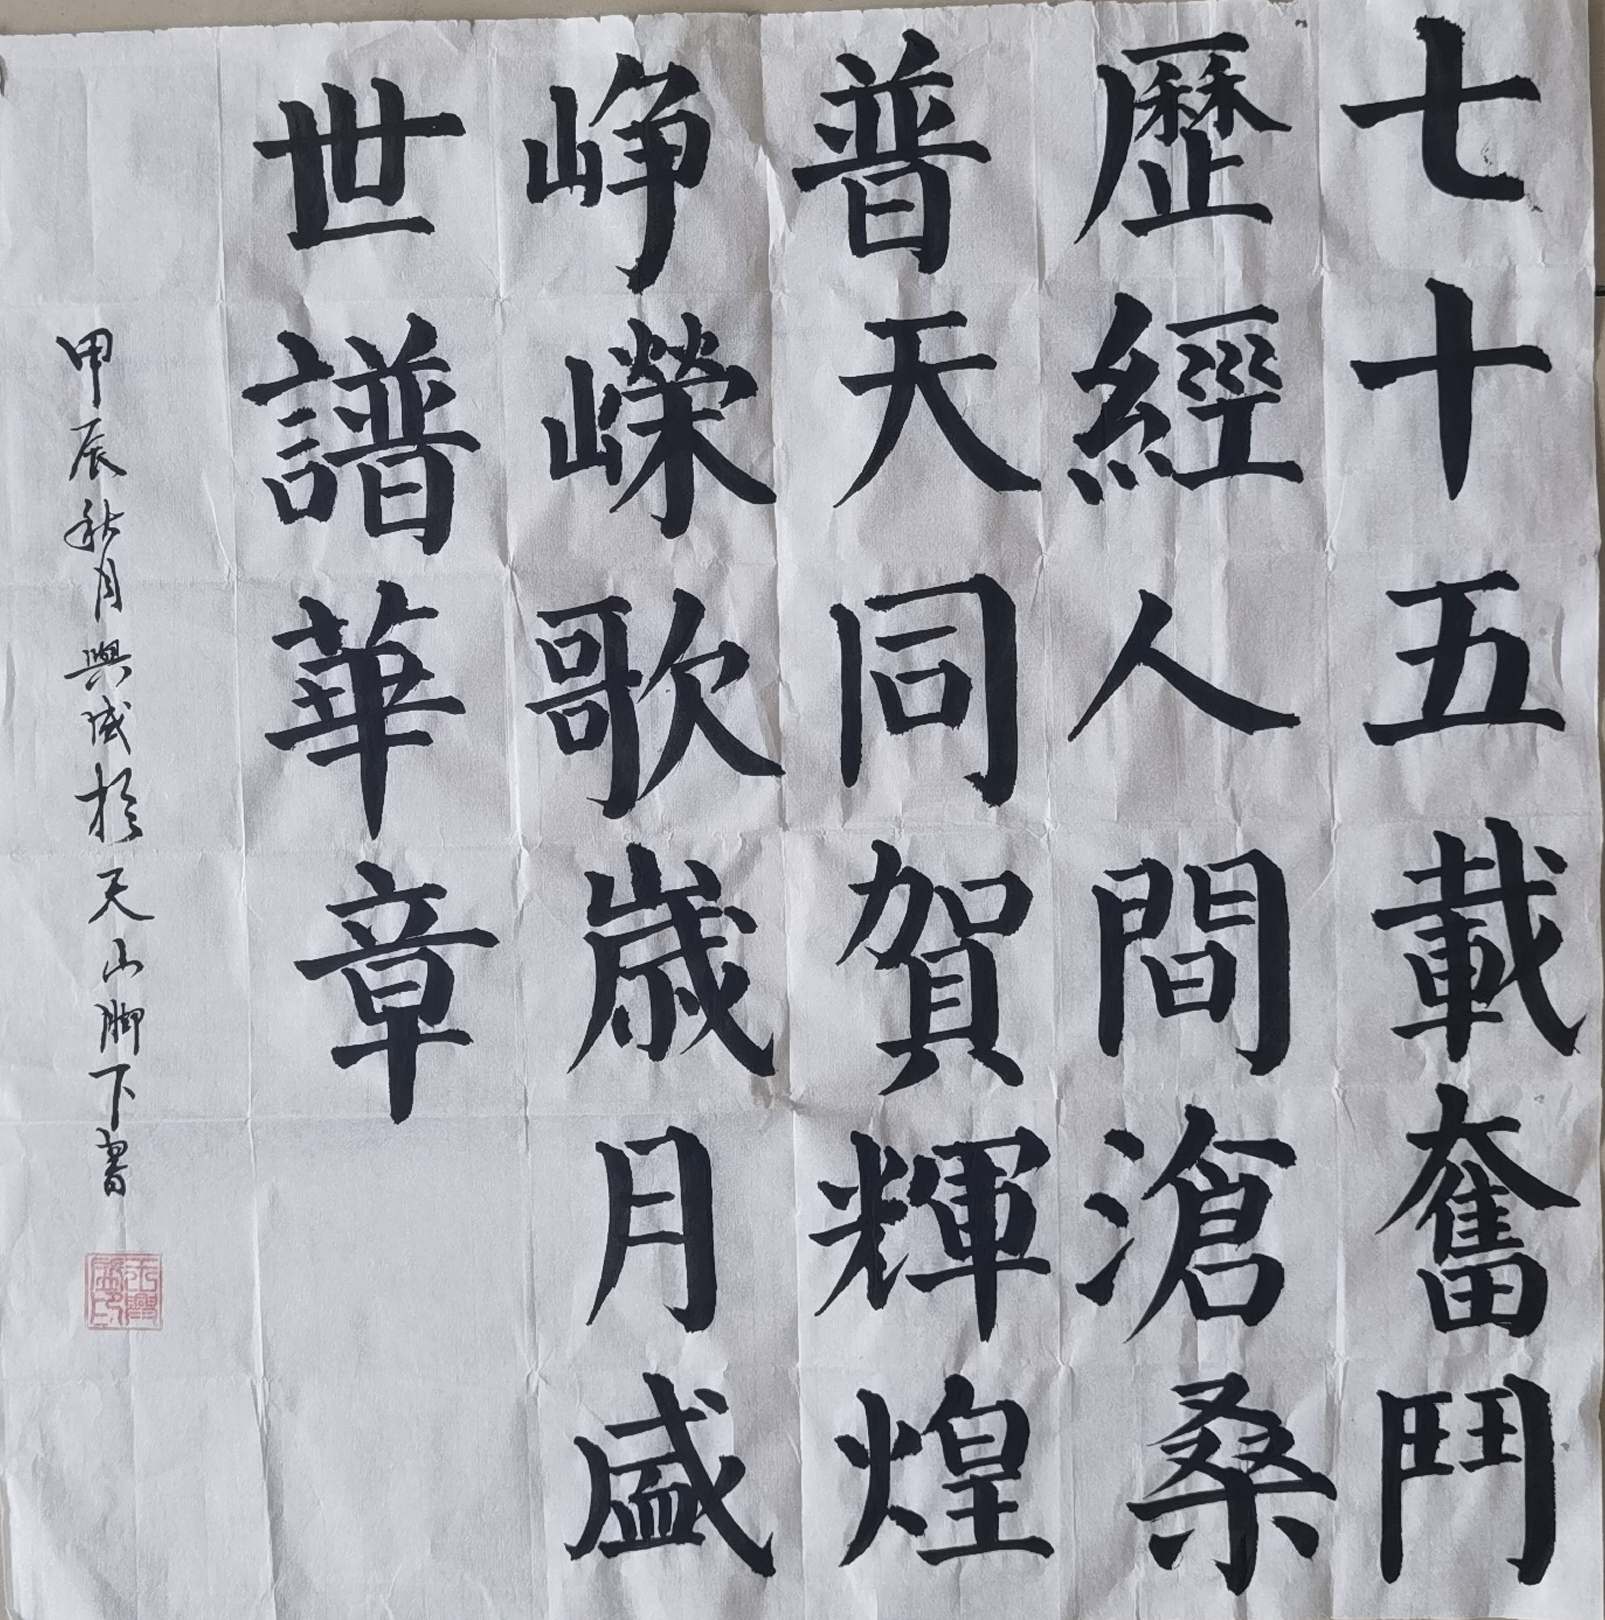 七十五載奮鬥
歷經人間滄桑
普天同賀輝煌
崢嶸歌歲月盛
世譜華章
甲辰秋月興盛於天山脚下書